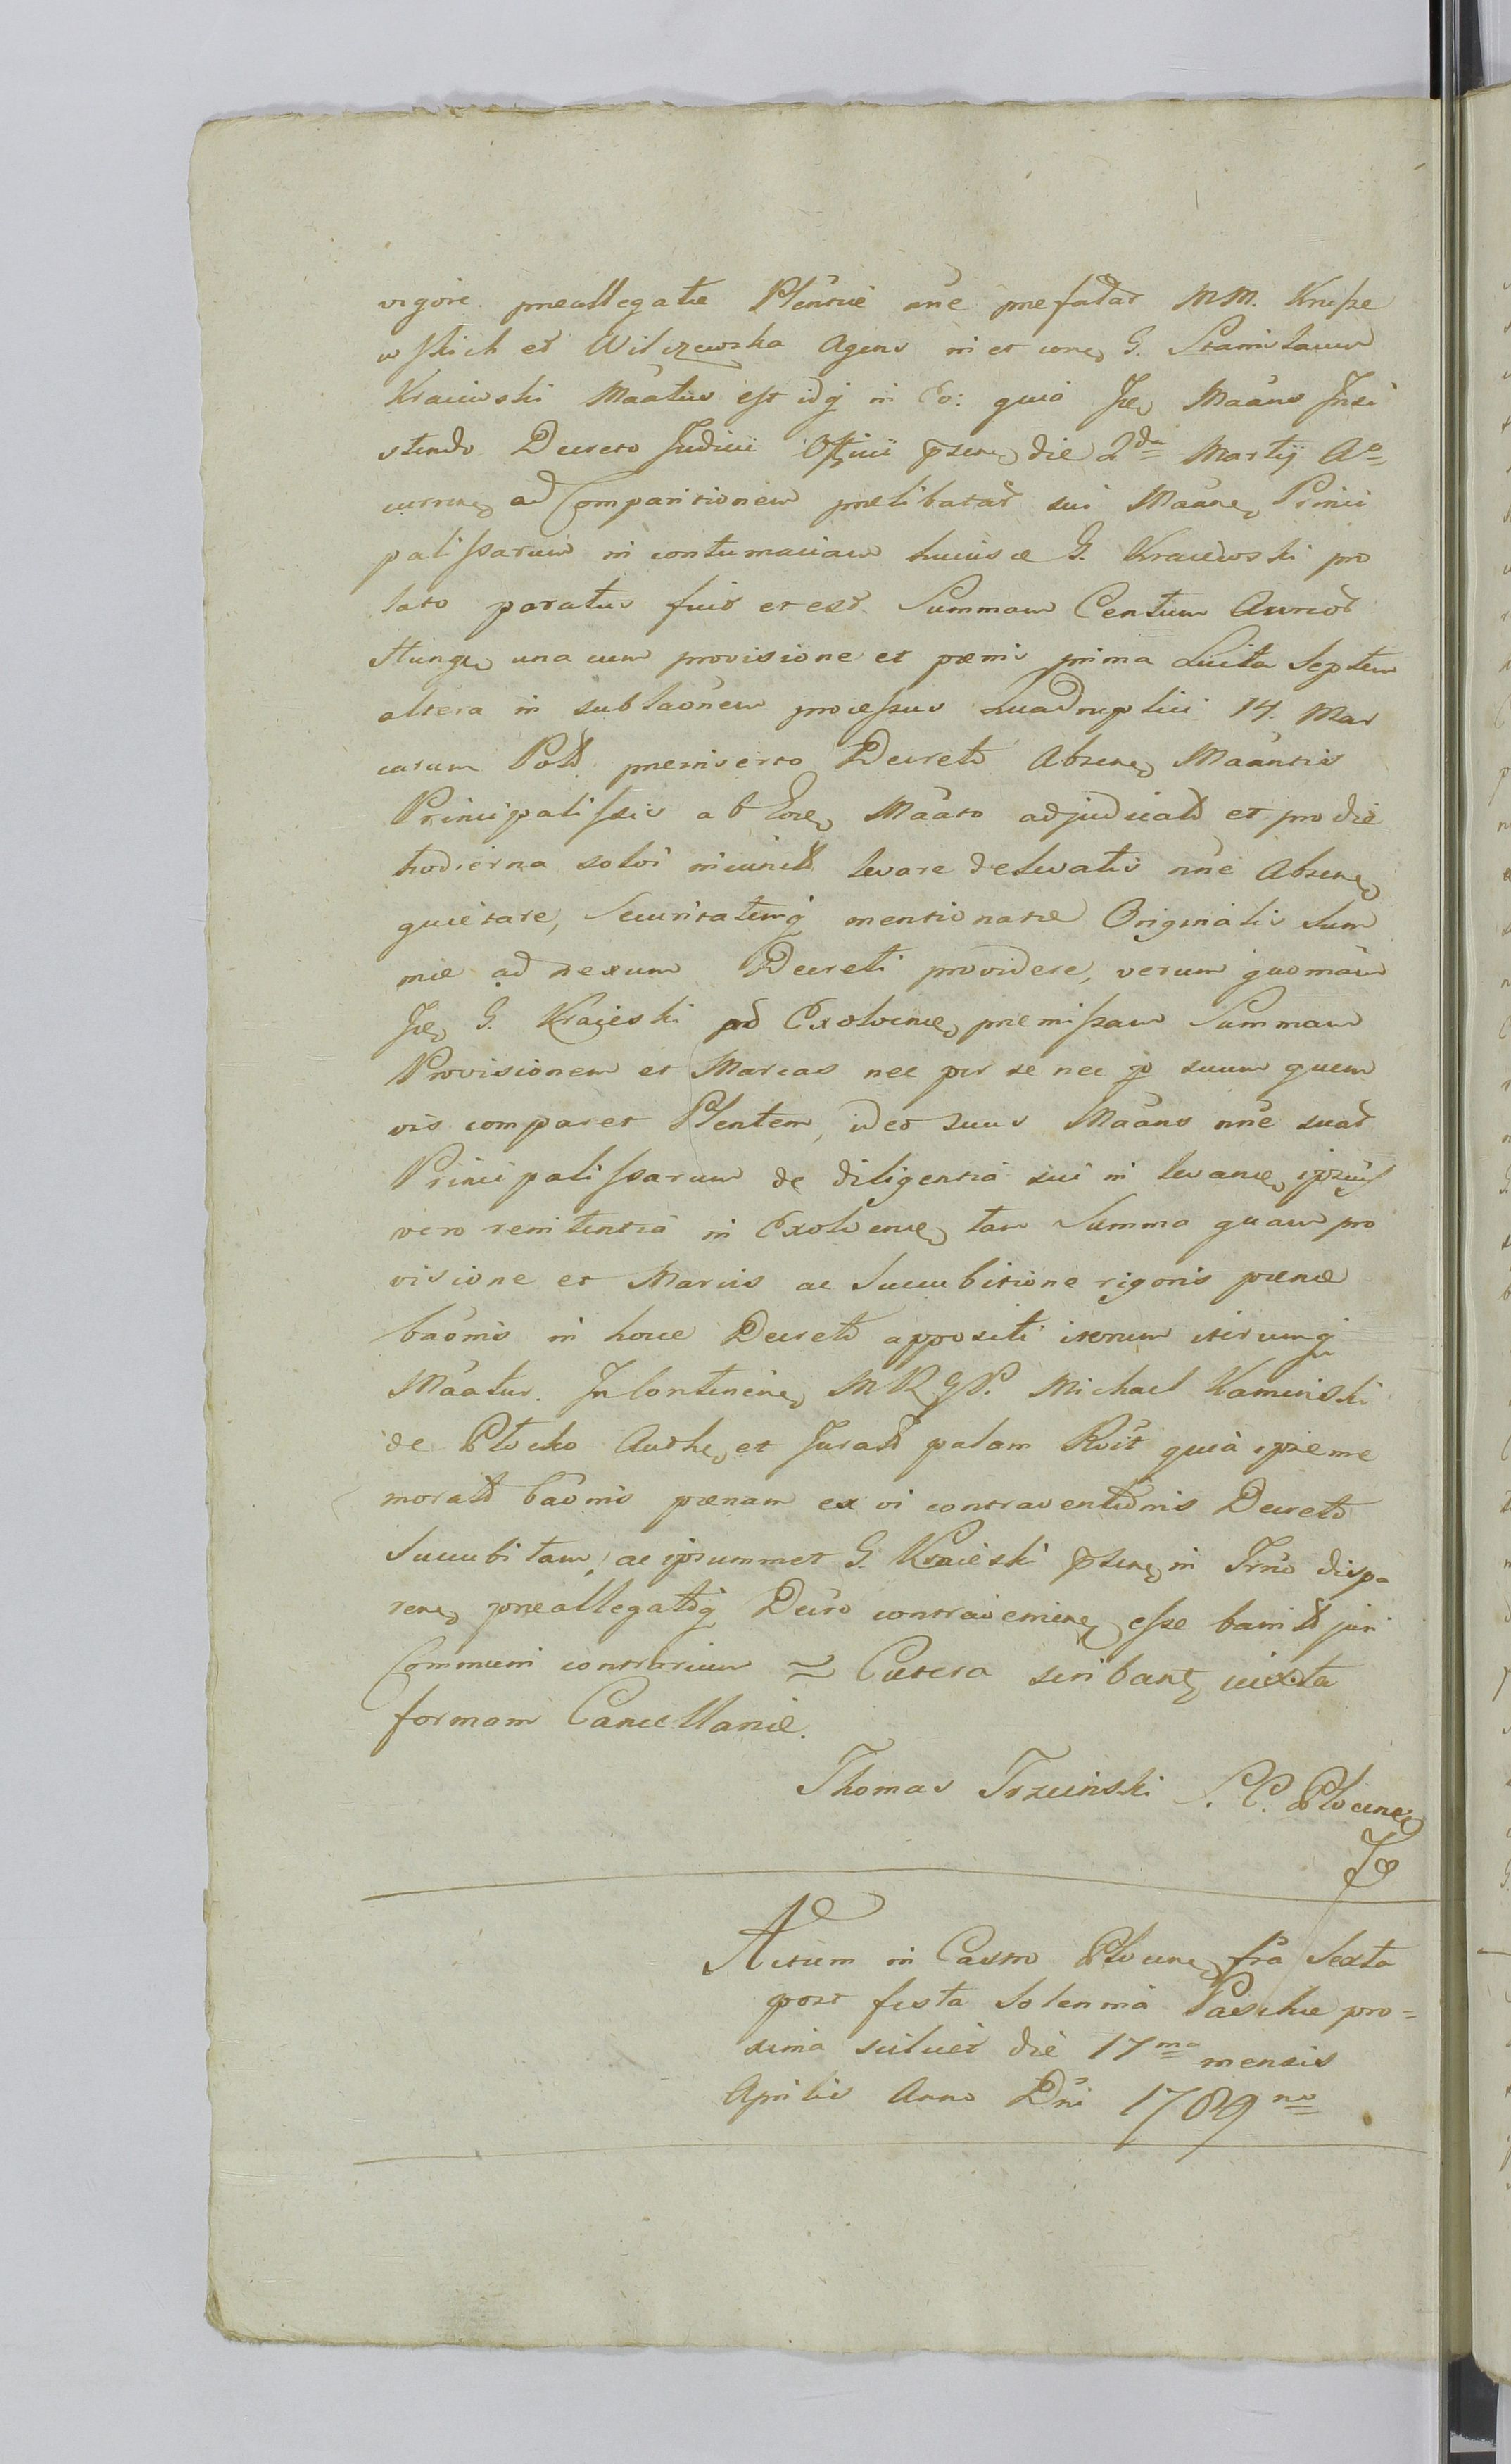 vigore preallegatæ Plentiæ nñe prefatar MM. Krusze
wskich et Wilczewska Agens in et cone G. Stanislaum
Kraiewski Maãtus est idq in Eo: quia Ise Maãns Insi
stendo Decreto Judicii Officii psene die 2da Martij Ao
currene ad Comparitionem prælibatar sui Maãne Princi
palissarum in contumaciam huiusce G. Kraiewski pro
lato paratus fuit et est Summam Centum Aureor
Hungr una cum provisione et pænis prima Luita Septem
altera in sublaõnem processus Quadruplici 14. Mar
carum Poll præinserto Decreto Absene Maãntis
Principalissis ab Eore Maãto adjudicatt et pro die
hodierna solvi iniunctt levare delevatis nñe Absene
quietare, Securitatemq mentionatæ Originalis Sum
mæ ad nexum Decreti providere, verum quoniam
Ise G. Krajeski ad Exolvene præmissam Summam
Provisionem et Marcas nec per se nec p suum quem
vis comparet Plentem, ideo suus Maãns nñe suar
Principalissarum de diligentia sui in levane, ipsius
vero renitentia in Exolvene tam Summa quam pro
visione et Marcis ac Succubitione rigoris pænæ
baõnis in hocce Decreto appositi iterum iterumq
Maãtur. In Continene MRGP. Michael Kaminski
de Plocko Authe et Juratt palam Rõit quia ipse me
moratt baõnis pænam ex vi contraventionis Decreto
Succubitam, ac ipsummet G. Kraieski psene in Trno dispa
rene preallegatoq Decro contravenine esse banitt juri
Communi contrarium ~ Cætera scribant iuxta
formam Cancellariæ.
Thomas Trzcinski S. C. Plocene
Actum in Castro Plocene fra Sexta
post festa Solennia Paschæ pro=
xima scilicet die 17ma mensis
Aprilis Anno Dni 1789no